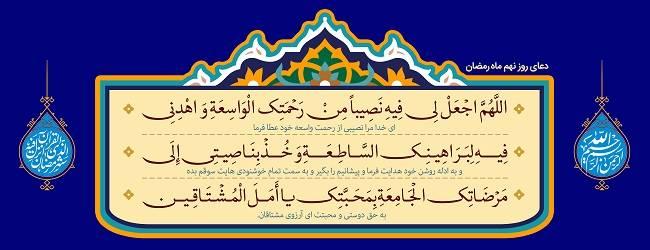 دعای روز نهم ماه رمضان
اللَّهُمَّ اجْعَلْ لِی فِیهِ نَصِیباً مِنْ رَحْمَتِکَ الْوَاسِعَةِ وَ اهْدِنِی
ای خدا مرا نصیبی از رحمت واسعه خود عطا فرما
فِیهِ لِبَرَاهِینِکَ السَّاطِعَةِ وَ خُذْ بِنَاصِیَتِی إِلَی
و به ادله روشن خود هدایت فرما و پیشانیم را بگیر و به سمت تمام خوشنودی هایت سوقم بده
مَرْضَاتِکَ الْجَامِعَةِ بِمَحَبَّتِکَ یَا أَمَلَ الْمُشْتَاقِینَ
به حق دوستی و محبتت ای آرزوی مشتاقان.
بسم الله الرحمن الرحیم
شهر رمضان الذی أنزل فیه القرآن